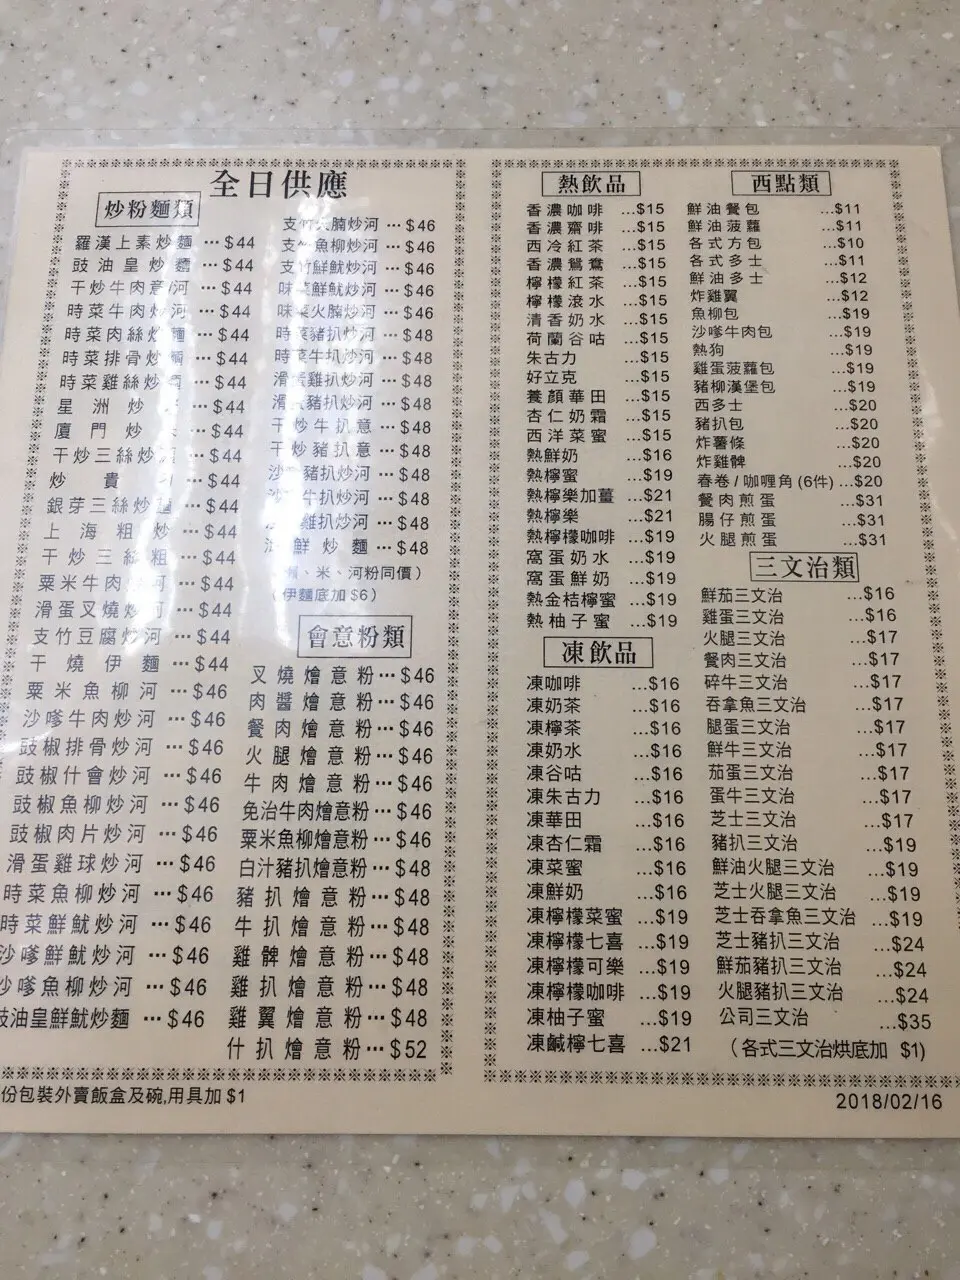 全日供應
炒粉麵類
羅漢上素炒麵 …$44
豉油皇炒麵 …$44
干炒牛肉意/河 …$44
時菜牛肉炒河 …$44
時菜肉絲炒麵 …$44
時菜排骨炒麵 …$44
時菜雞絲炒 …$44
星洲炒 …$44
廈門炒 …$44
干炒三絲炒河 …$44
炒貴 …$44
銀芽三絲炒麵 …$44
上海粗炒 …$44
干炒三絲粗 …$44
粟米牛肉 河 …$44
滑蛋叉燒炒河 …$44
支竹豆腐炒河 …$44
干燒伊麵 …$44
粟米魚柳河 …$46
沙嗲牛肉炒河 …$46
豉椒排骨炒河 …$46
豉椒什會炒河 …$46
豉椒魚柳炒河 …$46
豉椒肉片炒河 …$46
滑蛋雞球炒河 …$46
時菜魚柳炒河 …$46
時菜鮮魷炒河 …$46
沙嗲鮮魷炒河 …$46
沙嗲魚柳炒河 …$46
豉油皇鮮魷炒麵 …$46
支竹火腩炒河 …$46
支竹魚柳炒河 …$46
支竹鮮魷炒河 …$46
味菜鮮魷炒河 …$46
味菜火腩炒河 …$46
時菜豬扒炒河 …$48
時菜牛扒炒河 …$48
滑蛋雞扒炒河 …$48
滑蛋豬扒炒河 …$48
干炒牛扒意 …$48
干炒豬扒意 …$48
沙嗲豬扒炒河 …$48
沙嗲牛扒炒河 …$48
雞扒炒河 …$48
海鮮炒麵 …$48
、米、河粉同價）
（伊麵底加 $6）
會意粉類
叉燒燴意粉…$46
肉醬燴意粉…$46
餐肉燴意粉…$46
火腿燴意粉…$46
牛肉燴意粉…$46
免治牛肉燴意粉…$46
粟米魚柳燴意粉…$46
白汁豬扒燴意粉…$48
豬扒燴意粉…$48
牛扒燴意粉…$48
雞髀燴意粉…$48
雞扒燴意粉…$48
雞翼燴意粉…$48
什扒燴意粉…$52
份包裝外賣飯盒及碗,用具加 $1
熱飲品
香濃咖啡 ...$15
香濃齋啡 ...$15
西冷紅茶 ...$15
香濃鴛鴦 ...$15
檸檬紅茶 ...$15
檸檬滾水 ...$15
清香奶水 ...$15
荷蘭谷咕 ...$15
朱古力 ...$15
好立克 ...$15
養顏華田 ...$15
杏仁奶霜 ...$15
西洋菜蜜 ...$15
熱鮮奶 ...$16
熱檸蜜 ...$19
熱檸樂加薑 ...$21
熱檸樂 ...$21
熱檸檬咖啡 ...$19
窩蛋奶水 ...$19
窩蛋鮮奶 ...$19
熱金桔檸蜜 ...$19
熱柚子蜜 ...$19
凍飲品
凍咖啡 ...$16
凍奶茶 ...$16
凍檸茶 ...$16
凍奶水 ...$16
凍谷咕 ...$16
凍朱古力 ...$16
凍華田 ...$16
凍杏仁霜 ...$16
凍菜蜜 ...$16
凍鮮奶 ...$16
凍檸檬菜蜜 ...$19
凍檸檬七喜 ...$19
凍檸檬可樂 ...$19
凍檸檬咖啡 ...$19
凍柚子蜜 ...$19
凍鹹檸七喜 ...$21
西點類
鮮油餐包 ...$11
鮮油菠蘿 ...$11
各式方包 ...$10
各式多士 ...$11
鮮油多士 ...$12
炸雞翼 ...$12
魚柳包 ...$19
沙嗲牛肉包 ...$19
熱狗 ...$19
雞蛋菠蘿包 ...$19
豬柳漢堡包 ...$19
西多士 ...$20
豬扒包 ...$20
炸薯條 ...$20
炸雞髀 ...$20
春卷 / 咖喱角 (6件) ...$20
餐肉煎蛋 ...$31
腸仔煎蛋 ...$31
火腿煎蛋 ...$31
三文治類
鮮茄三文治 ...$16
雞蛋三文治 ...$16
火腿三文治 ...$17
餐肉三文治 ...$17
碎牛三文治 ...$17
吞拿魚三文治 ...$17
腿蛋三文治 ...$17
鮮牛三文治 ...$17
茄蛋三文治 ...$17
蛋牛三文治 ...$17
芝士三文治 ...$17
豬扒三文治 ...$19
鮮油火腿三文治 ...$19
芝士火腿三文治 ...$19
芝士吞拿魚三文治 ...$19
芝士豬扒三文治 ...$24
鮮茄豬扒三文治 ...$24
火腿豬扒三文治 ...$24
公司三文治 ...$35
（各式三文治烘底加 $1)
2018/02/16